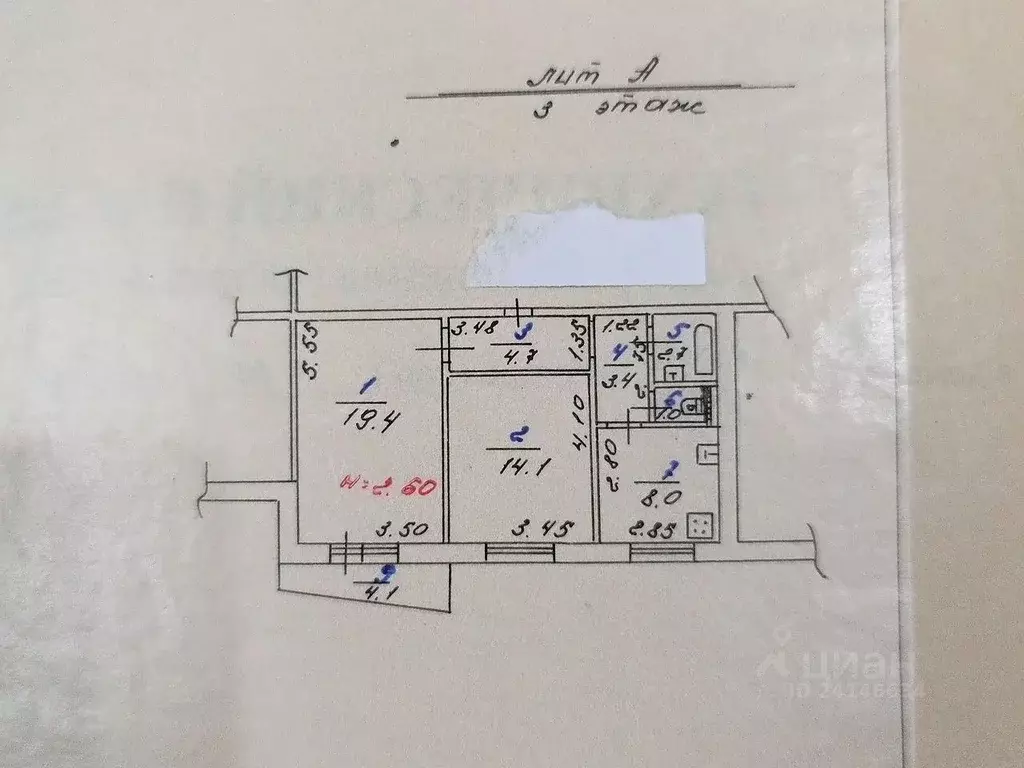 лит А
3 этаж
5.55
1
19.4
н=2.60
3.50
3.48
3
4.7
1.35
2
14.1
4.10
3.45
1.22
4
3.4
5
2.7
6
1.0
2.80
7
8.0
2.85
4.1
циан
ID 24146634